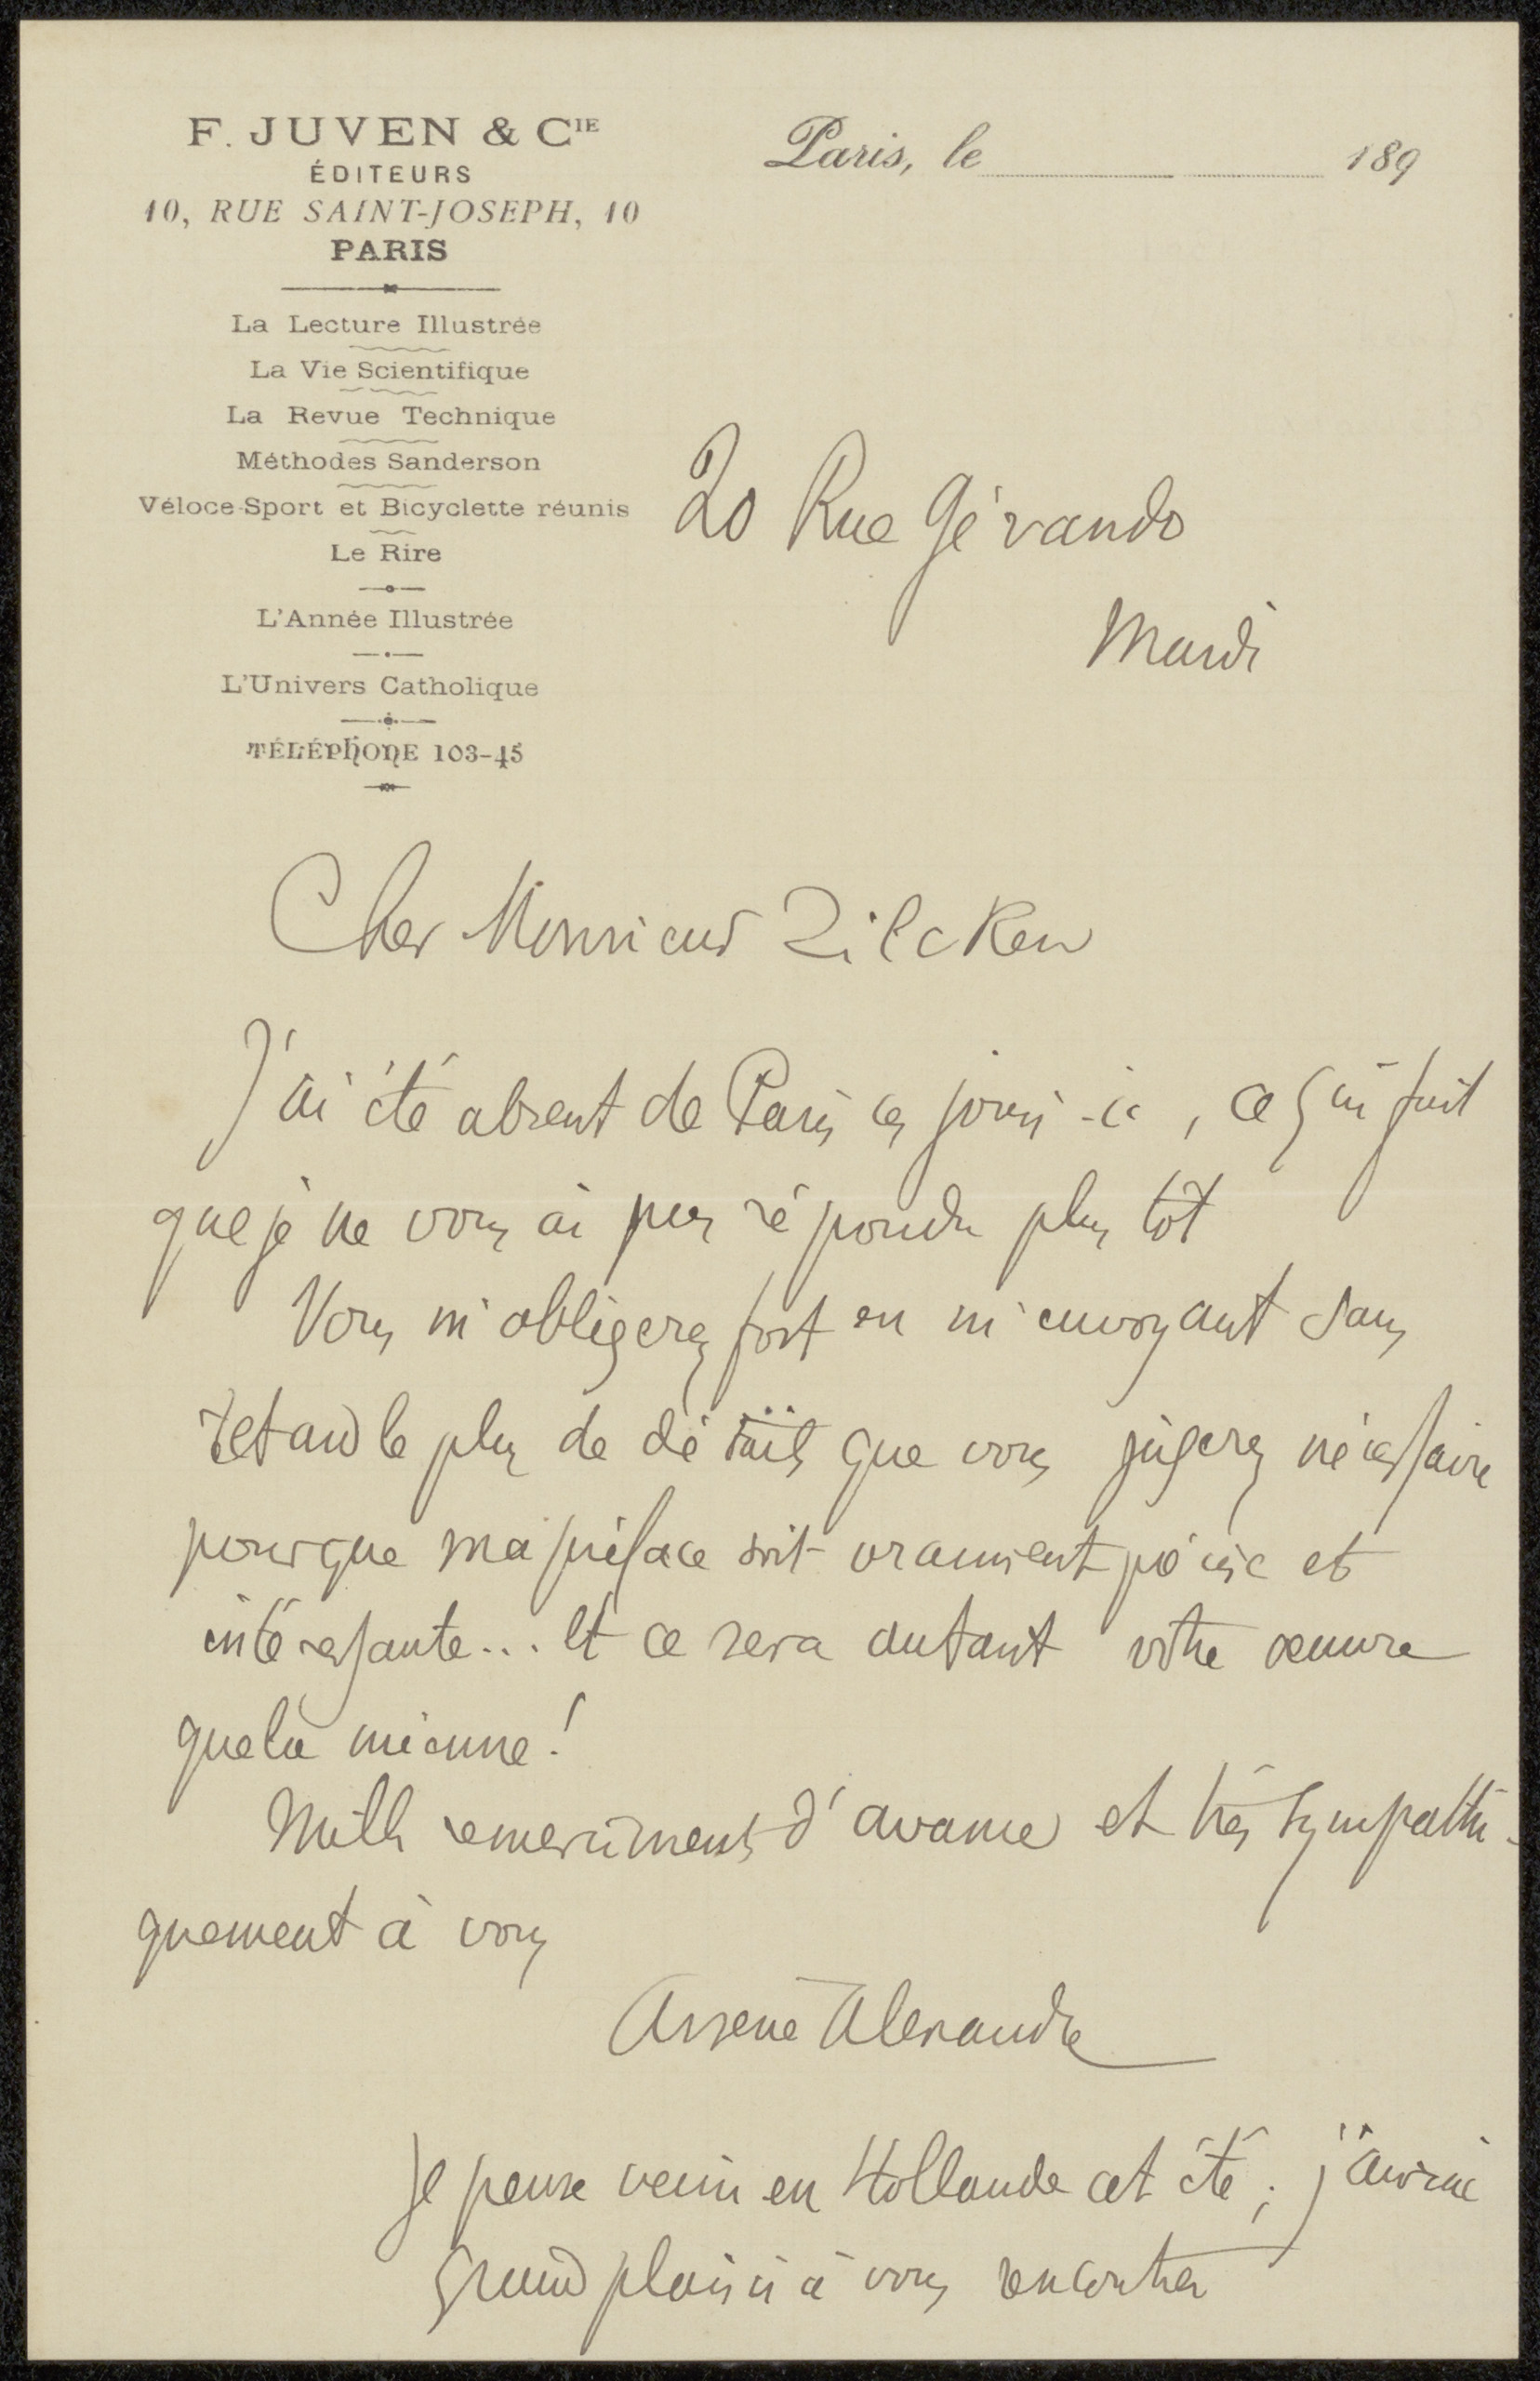 F. JUVEN & CIE
ÉDITEURS
10, RUE SAINT-JOSEPH, 10
PARIS
La Lecture Illustrée
La Vie Scientifique
La Revue Technique
Méthodes Sanderson
Véloce-Sport et Bicyclette réunis
Le Rire
L'Année Illustrée
L'Univers Catholique
TÉLÉPHONE 103-45
Paris, le 189
20 Rue Gérando
Mardi
Cher Monsieur Zilcken
J'ai été absent de Paris ces jours-ci, ce qui fait
que je ne vous ai pas répondu plus tôt
Vous m'obligerez fort en m'envoyant sans
retard le plus de détails que vous jugerez nécessaire
pour que ma préface soit vraiment précise et
intéressante... Et ce sera autant votre œuvre
que la mienne!
Mille remerciments d'avance et très sympathi-
quement à vous
Arsène Alexandre
Je pense venir en Hollande cet été; j'aurai
grand plaisir à vous rencontrer